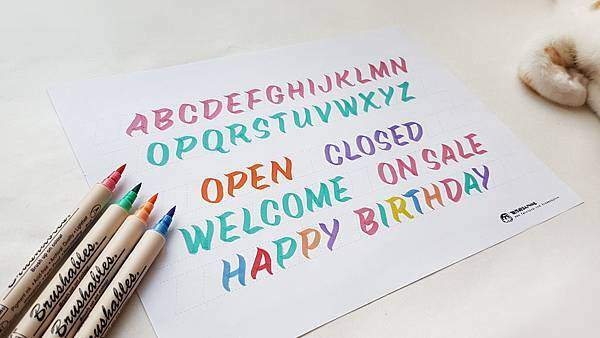 ABCDEFGHIJKLMN
OPQRSTUVWXYZ
OPEN CLOSED
WELCOME ON SALE
HAPPY BIRTHDAY
Brushables.
Brushables.
Brushables.